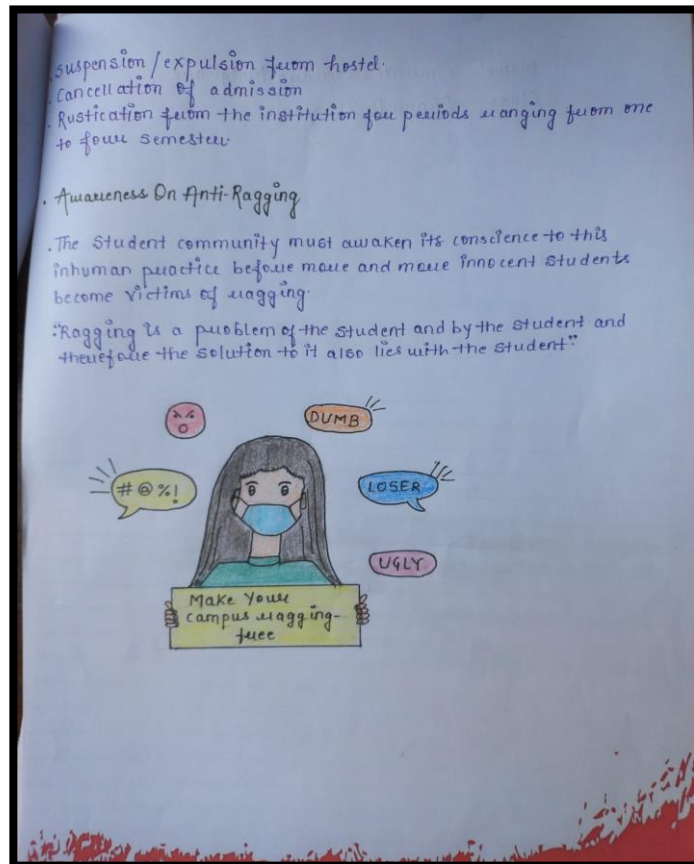 . Suspension/expulsion from hostel.
. Cancellation of admission
. Rustication from the institution for periods ranging from one
to four semester.
. Awareness On Anti-Ragging
. The Student community must awaken its conscience to this
inhuman practice before more and more innocent Students
become victims of ragging.
"Ragging is a problem of the student and by the student and
therefore the solution to it also lies with the student"
DUMB
#@%!
LOSER
UGLY
Make Your
campus ragging-
free